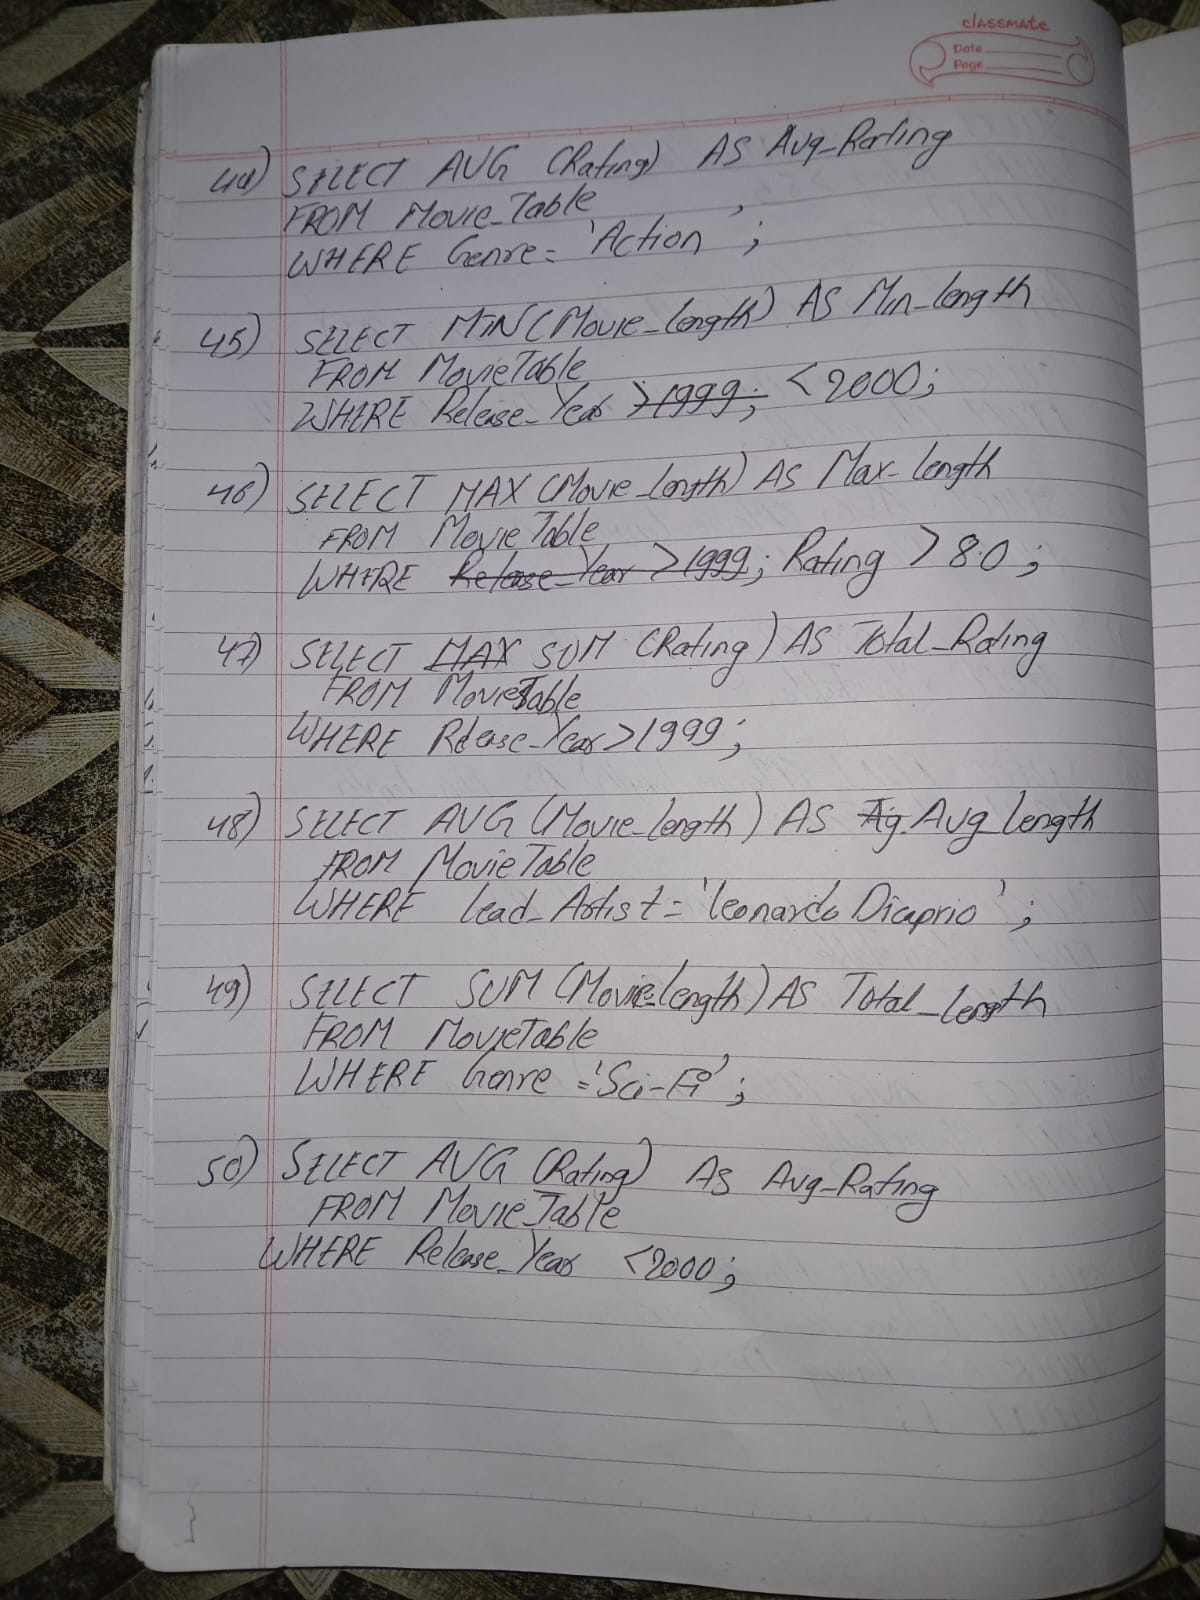 classmate
Date
Page
44) SELECT AVG (Rating) AS Avg_Rating
FROM Movie_Table
WHERE Genre = 'Action';
45) SELECT MIN (Movie_length) AS Min_length
FROM MovieTable
WHERE Release_Year >1999; <2000;
46) SELECT MAX (Movie_length) AS Max_length
FROM MovieTable
WHERE Release_Year >1999; Rating > 8.0;
47) SELECT MAX SUM (Rating) AS Total_Rating
FROM MovieTable
WHERE Release_Year >1999;
48) SELECT AVG (Movie_length) AS Ag. Avg_length
FROM MovieTable
WHERE lead_Artist = 'leonardo Dicaprio';
49) SELECT SUM (Movie_length) AS Total_length
FROM MovieTable
WHERE Genre = 'Sci-Fi';
50) SELECT AVG (Rating) AS Avg_Rating
FROM Movie_Table
WHERE Release_Year <2000;